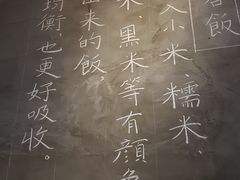 宿飯
入小米、糯米、
米、黑米等有顏色
出來的飯，
均衡，也更好吸收。